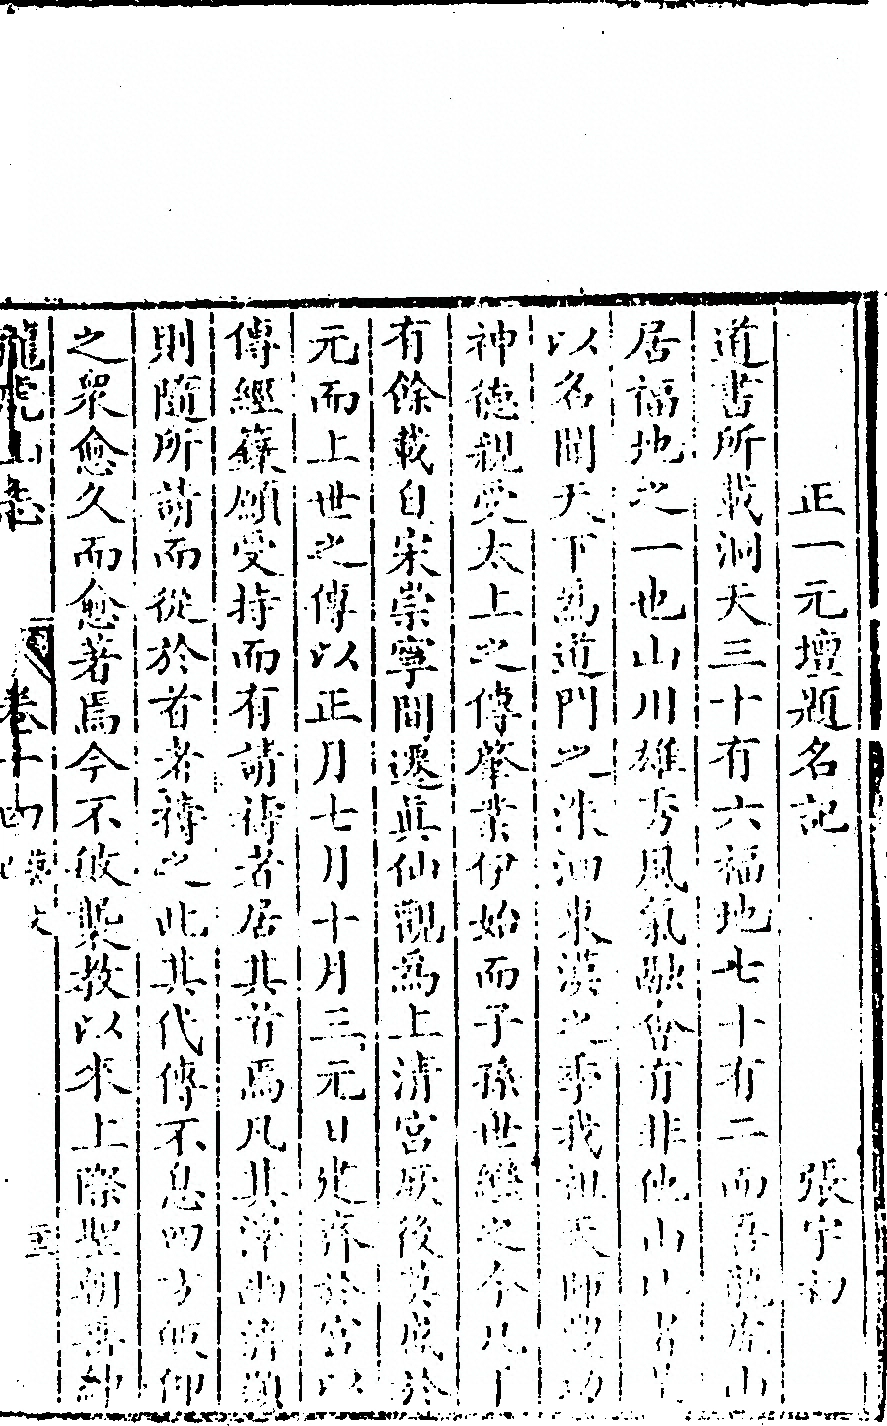 正一元壇題名記 張宇初
道書所載洞天三十有六福地七十有二而吾龍虎山
居福地之一也山川雄秀風氣融會有非他山比者
以名聞天下為道門之洙泗東漢之季我祖天師豐功
神德親受太上之傳肇業伊始而子孫世繼之今凡
有餘載自宋崇寧間遷真仙觀為上清宮厥後莫盛於
元而上世之傳以正月七月十月三元日建齋於宮以
傳經籙願受持而有請禱者居其首焉凡其滓幽濟顯
則隨所請而從於首者禱之此其代傳不息四方皈仰
之眾愈久而愈著焉今不敏襲教以來上際聖朝 紳
龍虎山志 卷十四 藝文